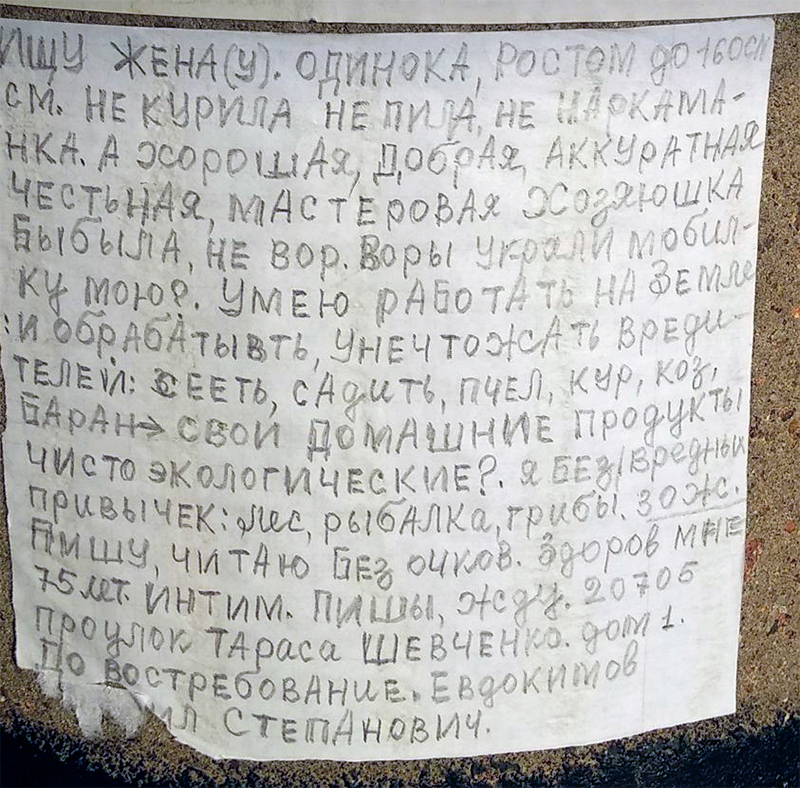 ИЩУ ЖЕНА(У). ОДИНОКА, РОСТОМ ДО 160СМ
СМ. НЕ КУРИЛА НЕ ПИЛА, НЕ НАРКАМА-
НКА. А ХОРОШАЯ, ДОБРАЯ, АККУРАТНАЯ
ЧЕСТЬНАЯ, МАСТЕРОВАЯ ХОЗЯЮШКА
БЫБЫЛА, НЕ ВОР. ВОРЫ УКРАЛИ МОБИЛ-
КУ МОЮ?. УМЕЮ РАБОТАТЬ НА ЗЕМЛЕ
: И ОБРАБАТЫВТЬ, УНЕЧТОЖАТЬ ВРЕДИ-
ТЕЛЕЙ: СЕЕТЬ, САДИТЬ, ПЧЕЛ, КУР, КОЗ,
БАРАН→ СВОИ ДОМАШНИЕ ПРОДУКТЫ
ЧИСТО ЭКОЛОГИЧЕСКИЕ?. Я БЕЗ/ВРЕДНЫХ
ПРИВЫЧЕК: ЛЕС, РЫБАЛКА, ГРИБЫ. ЗОЖ.
ПИШУ, ЧИТАЮ БЕЗ ОЧКОВ. ЗДОРОВ МНЕ
75 ЛЕТ. ИНТИМ. ПИШЫ, ЖДУ. 20705
ПРОУЛОК ТАРАСА ШЕВЧЕНКО. ДОМ 1.
ДО ВОСТРЕБОВАНИЕ. ЕВДОКИМОВ
СТЕПАНОВИЧ.